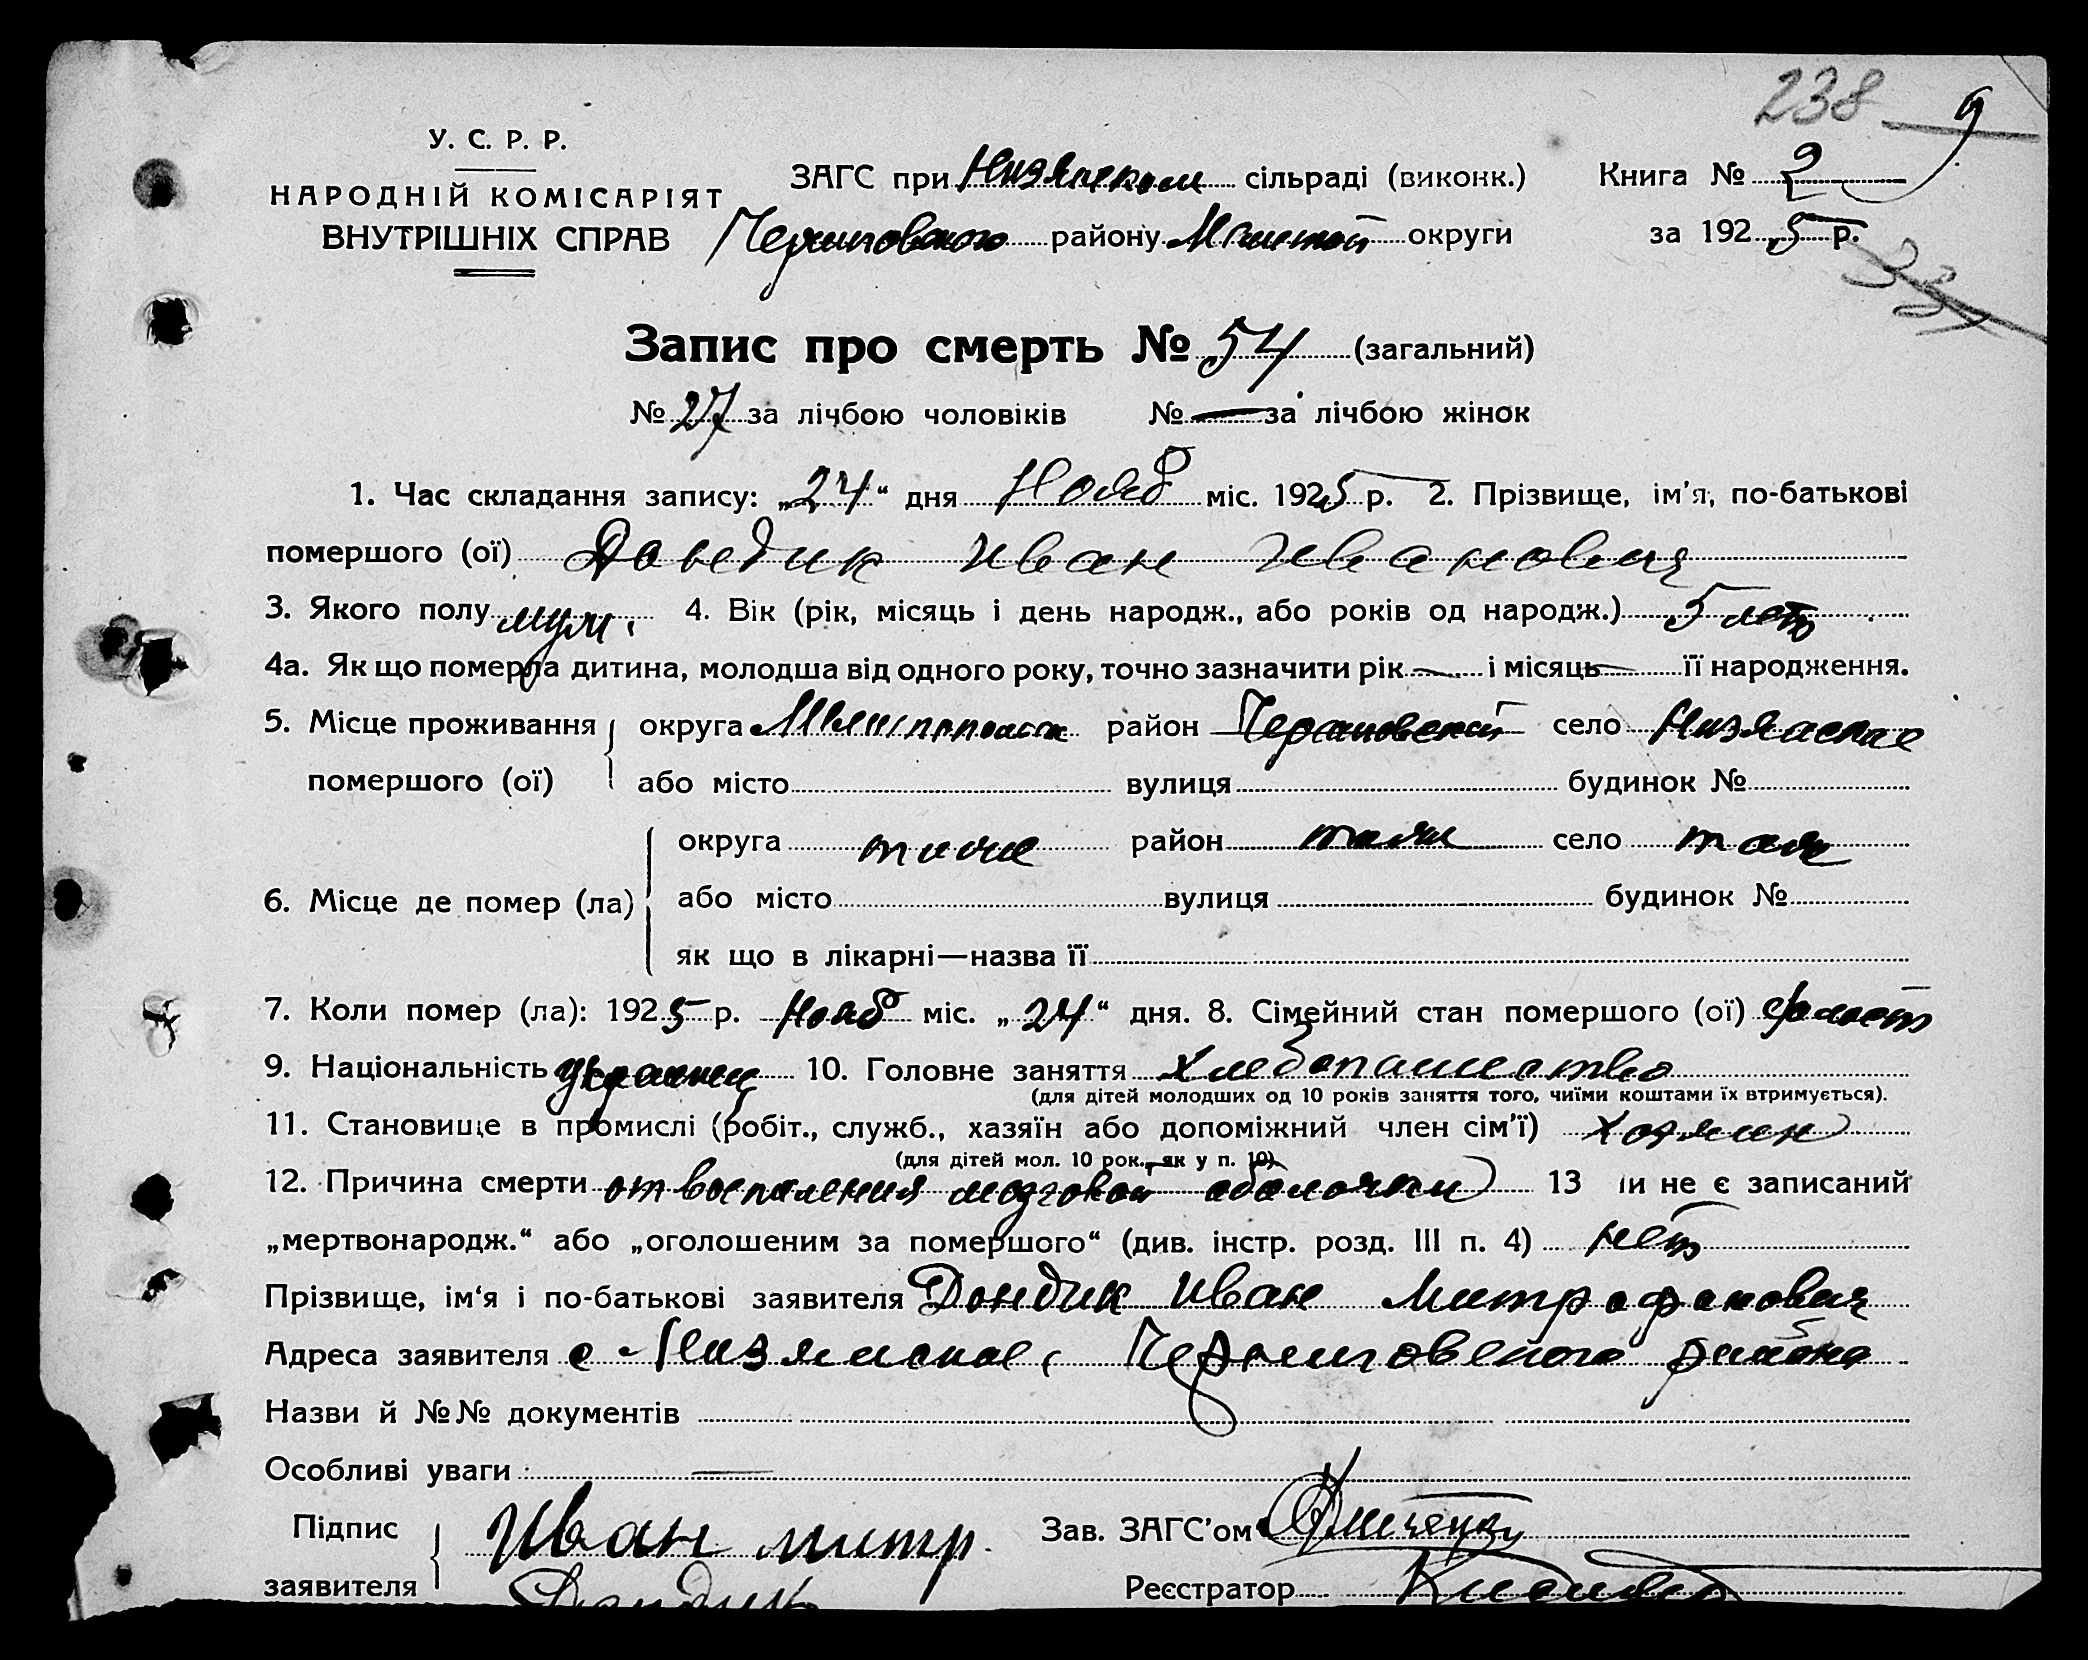 238 9
У. С. Р. Р.
НАРОДНІЙ КОМІСАРІЯТ
ВНУТРІШНІХ СПРАВ
ЗАГС при сільраді (виконк.) Книга № 2
району округи за 1925 р.
33
Запис про смерть № 54 (загальний)
№ 27 за лічбою чоловіків № — за лічбою жінок
1. Час складання запису: „24“ дня Нояб міс. 1925 р. 2. Прізвище, ім'я, по-батькові
помершого (ої) Дондик Иван Иванович
3. Якого полу муж. 4. Вік (рік, місяць і день народж., або років од народж.) 5 лет
4а. Як що померла дитина, молодша від одного року, точно зазначити рік — і місяць — її народження.
5. Місце проживання округа район село
помершого (ої) або місто вулиця будинок №
округа тоже район село
6. Місце де помер (ла) або місто вулиця будинок №
як що в лікарні—назва її
7. Коли помер (ла): 1925 р. Нояб міс. „24“ дня. 8. Сімейний стан помершого (ої) холост
9. Національність украинец 10. Головне заняття хлебопашество
(для дітей молодших од 10 років заняття того, чиїми коштами їх втримується).
11. Становище в промислі (робіт., служб., хазяїн або допоміжний член сім'ї) хозяин
(для дітей мол. 10 рок., як у п. 10)
12. Причина смерти от воспаления мозговой оболочки 13 и не є записаний
„мертвонародж.“ або „оголошеним за помершого“ (див. інстр. розд. III п. 4) нет
Прізвище, ім‘я і по-батькові заявителя Дондик Иван Митрофанович
Адреса заявителя с Черниговского района
Назви й №№ документів
Особливі уваги —
Підпис Иван митр Зав. ЗАГС'ом
заявителя Дондик Реєстратор